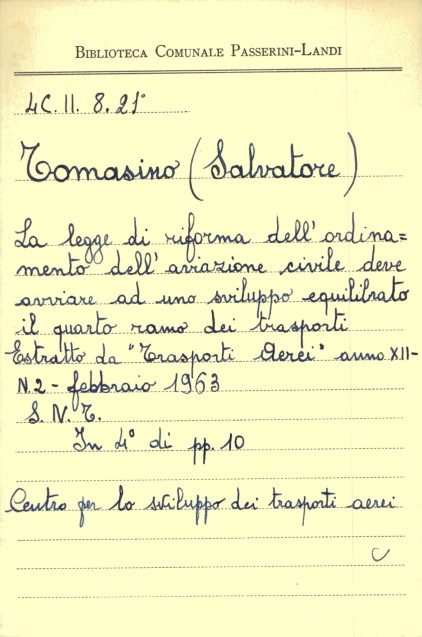 BIBLIOTECA COMUNALE PASSERINI-LANDI
4C. II. 8. 21°
Tomasino (Salvatore)
La legge di riforma dell'ordina=
mento dell'aviazione civile deve
avviare ad uno sviluppo equilibrato
il quarto ramo dei trasporti
Estratto da "Trasporti Aerei" anno XII-
N.2 - febbraio 1963
S. N. T.
In 4° di pp. 10
Centro per lo sviluppo dei trasporti aerei
C